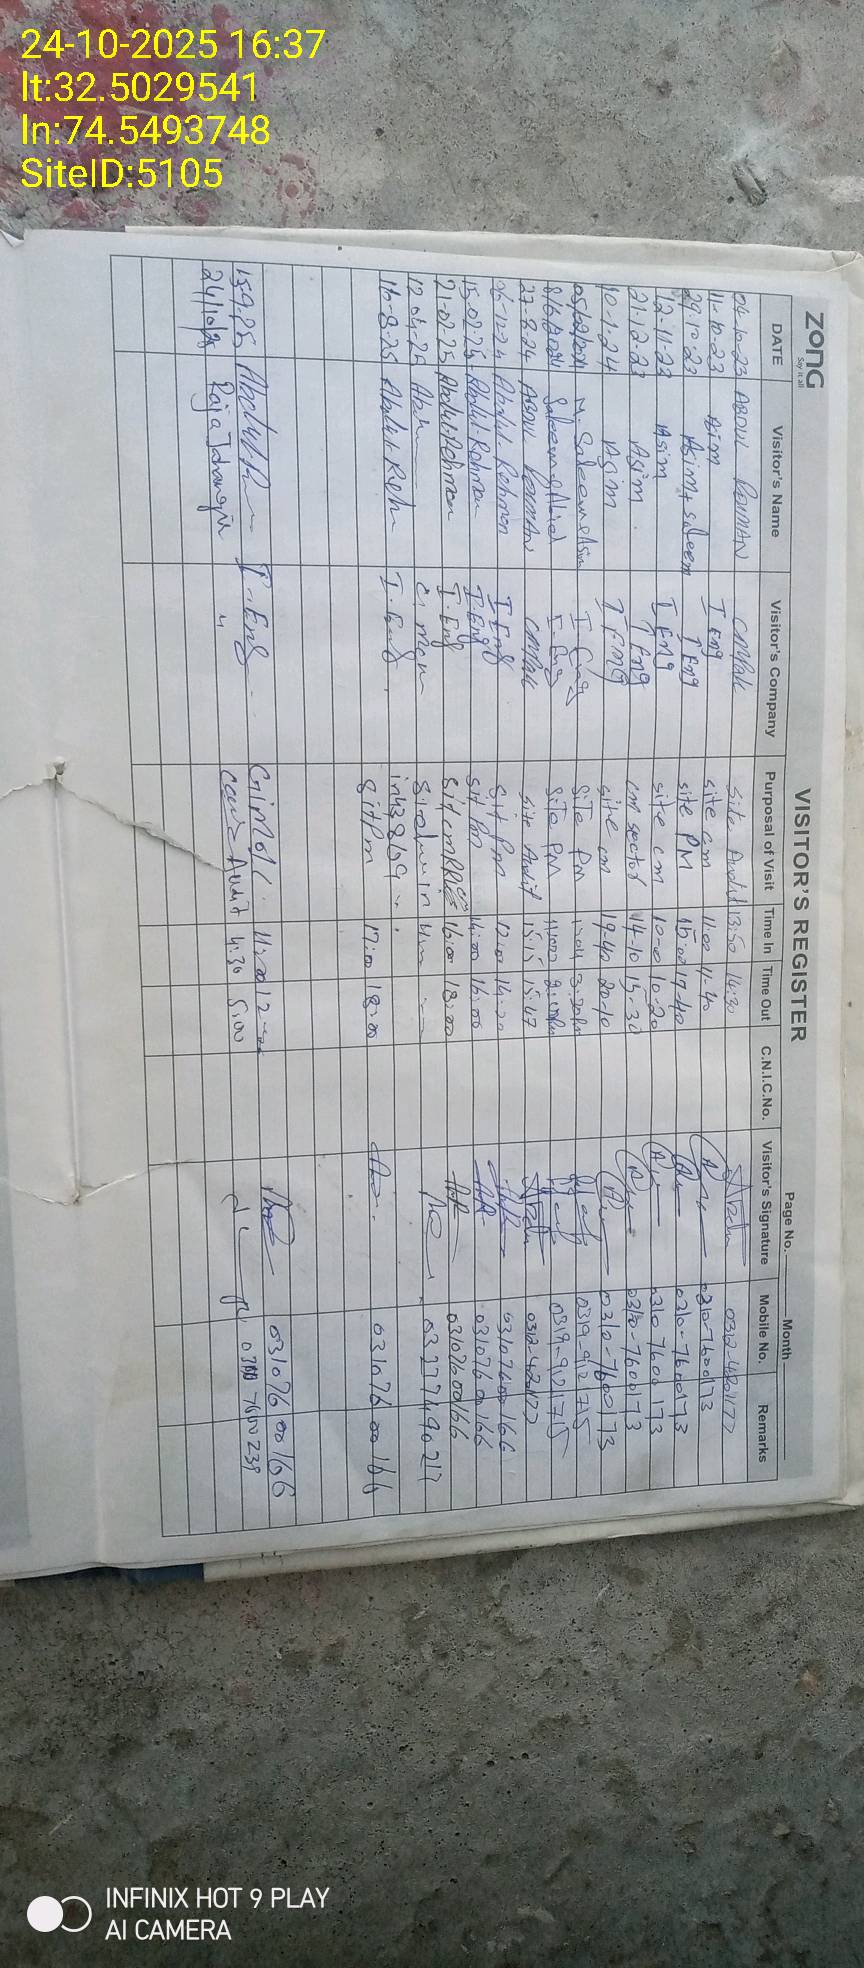 24-10-2025 16:37
lt:32.5029541
ln:74.5493748
SiteID:5105
zong
Say it all
VISITOR'S REGISTER
Page No. Month
DATE Visitor's Name Visitor's Company Purposal of Visit Time In Time Out C.N.I.C.No. Visitor's Signature Mobile No. Remarks
04-10-23 ABDUL REHMAN CMPAK Site Audit 13:50 14:30 0312-4201177
11-10-23 Asim I Eng site cm 11:00 11-40 0310-7600173
29-10-23 Asim + Saleem I Eng site PM 17-40 0310-7600173
12-11-23 Asim I Eng site cm 10-0 10-20 0310 7600173
21-12-23 Asim I Eng cm sector 14-10 15-30 0310-7600173
10-1-24 Asim I Eng site cm 19-40 20-10 0310-7600173
05/02/2024 M. Saleem & Asim I-Eng Site PM 0319-9121715
8/6/2024 Saleem & Abid I-Eng Site PM 0319-9121715
27-8-24 ABDUL REHMAN CMPAK Site Audit 15:15 15:47 0312-4201177
06-12-24 Abdul Rehman I Eng Sit Pm 14:20 03107600166
15.02.25 Abdul Rehman I.Eng Sit Pm 14:00 16:00 03107600166
21-02-25 Abdul Rehman I.Eng 16:00 18:00 03107600166
12.04-25
16-8-25 Abdul Reh I-Eng Sit Pm 17:00 18:00 03107600166
15.9.25 I-Eng 11:00 03107600166
24/10/25 Raja Jahangir " Audit 4:30 5:00 7600239
INFINIX HOT 9 PLAY
AI CAMERA